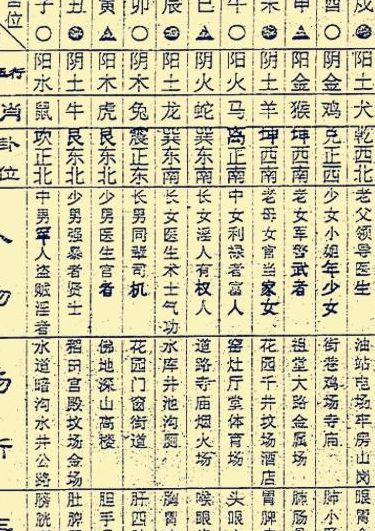 位 子 丑 寅 卯 辰 巳 午 未 申 酉 戌
五行 阳水 阴土 阳木 阴木 阳土 阴火 阳火 阴土 阳金 阴金 阳土
肖 鼠 牛 虎 兔 龙 蛇 马 羊 猴 鸡 犬
卦位 坎正北 艮东北 艮东北 震正东 巽东南 巽东南 离正南 坤西南 坤西南 兑正西 乾西北
人物 中男罪人盗贼淫者 少男强暴者贤士 少男医生宫者 长男同辈司机 长女医生术士气功 长女淫人有权人 中女利禄者富人 老母女官当家女 老女军警武者 少女小姐年少女 老父领导医生
场所 水道暗沟水井公路 稻田宫殿坟场金场 佛地深山高楼 花园门窗街道 水库井池沟厕 道路寺庙烟火场 窑灶厅堂体育场 花园千井坟场酒店 祖堂大路金属场 街巷鸡场寺庙 油站电场牢房山岗
膀胱 肚脾 胆手 肝四 胸胃 喉眼 头眼 胃脾 肺肠 肺小